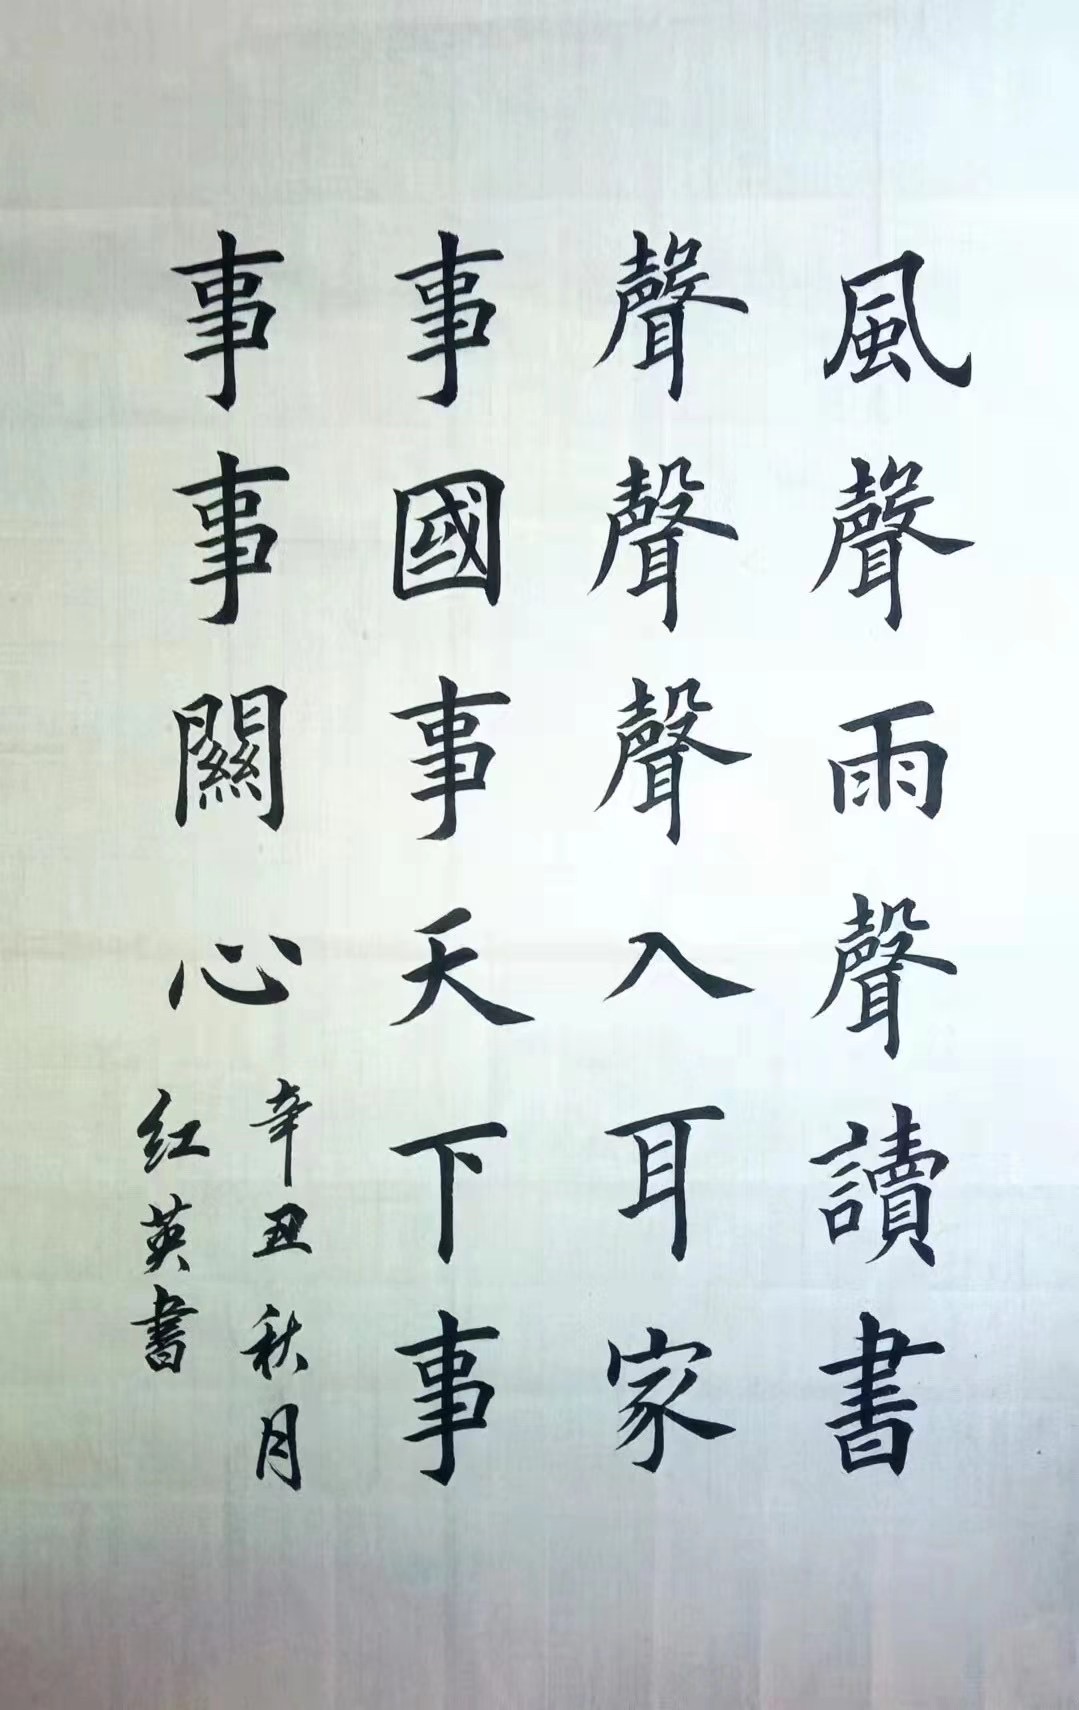 風聲雨聲讀書
聲聲聲入耳家
事國事天下事
事事關心
辛丑秋月
红英書